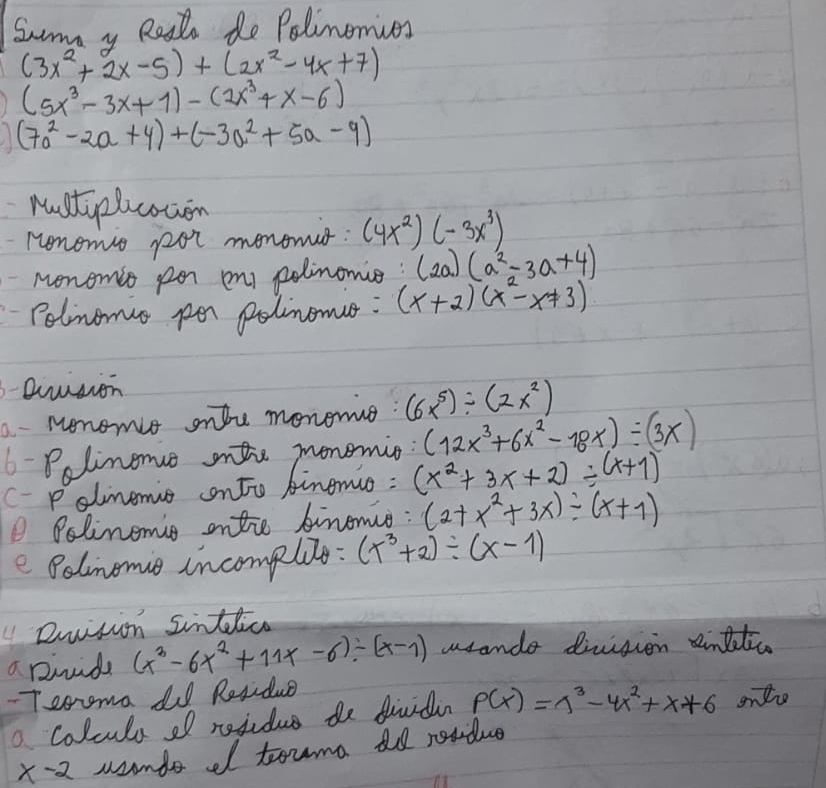 Suma y Resta de Polinomios
(3x² + 2x - 5) + (2x² - 4x + 7)
) (5x³ - 3x + 1) - (2x³ + x - 6)
) (7a² - 2a + 4) + (-3a² + 5a - 9)
- Multiplicación
- Monomio por monomio: (4x²) (-3x³)
- Monomio por polinomio: (2a) (a² - 3a + 4)
- Polinomio por polinomio: (x + 2) (x² - x + 3)
- División
a- Monomio entre monomio: (6x⁵) ÷ (2x²)
b- Polinomio entre monomio: (12x³ + 6x² - 18x) ÷ (3x)
c- Polinomio entre binomio = (x² + 3x + 2) ÷ (x + 1)
Polinomio entre binomio: (2 + x² + 3x) ÷ (x + 1)
e Polinomio incompleto = (x³ + 2) ÷ (x - 1)
4 División Sintetica
a Divide (x³ - 6x² + 11x - 6) ÷ (x - 1) usando división sintetica
- Teorema del Residuo
a Calcula el residuo de dividir P(x) = x³ - 4x² + x + 6 entre
x - 2 usando el teorema del residuo